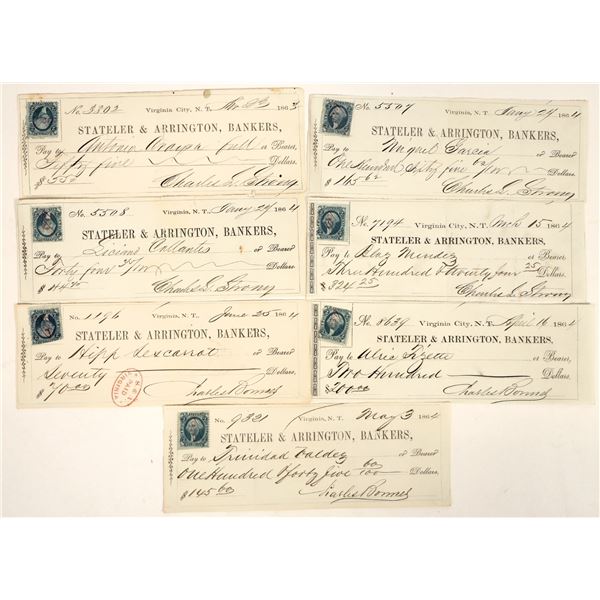 No. 3302 Virginia City, N. T. 1863
STATELER & ARRINGTON, BANKERS,
Pay to Antonio or Bearer,
Fifty five Dollars.
$55.00 Charles L. Strong
No. 5507 Virginia City, N. T. Jany 29 1864
STATELER & ARRINGTON, BANKERS,
Pay to Miguel Garcia or Bearer,
One Hundred Sixty five 62/100 Dollars.
$165.62 Charles L. Strong
No. 5508 Virginia City, N. T. Jany 29 1864
STATELER & ARRINGTON, BANKERS,
Pay to or Bearer,
Forty four 75/100 Dollars.
$44.75 Charles L. Strong
No. 7194 Virginia City, N. T. Mch 15 1864
STATELER & ARRINGTON, BANKERS,
Pay to Blaz Mendez or Bearer,
Three Hundred & twenty four 25 Dollars.
$324.25 Charles L. Strong
No. 1196 Virginia, N. T. June 25 1864
STATELER & ARRINGTON, BANKERS,
Pay to Hipp or Bearer
Seventy Dollars.
$70.00 PAID VIRGINIA Charles Bonner
No. 8629 Virginia City, N. T. April 16 1864
STATELER & ARRINGTON, BANKERS,
Pay to or Bearer,
Two Hundred Dollars.
$200.00 Charles Bonner
No. 9321 Virginia, N. T. May 3 1864
STATELER & ARRINGTON, BANKERS,
Pay to Trinidad Valdez or Bearer
One Hundred & forty five 60/100 Dollars.
$145.60 Charles Bonner